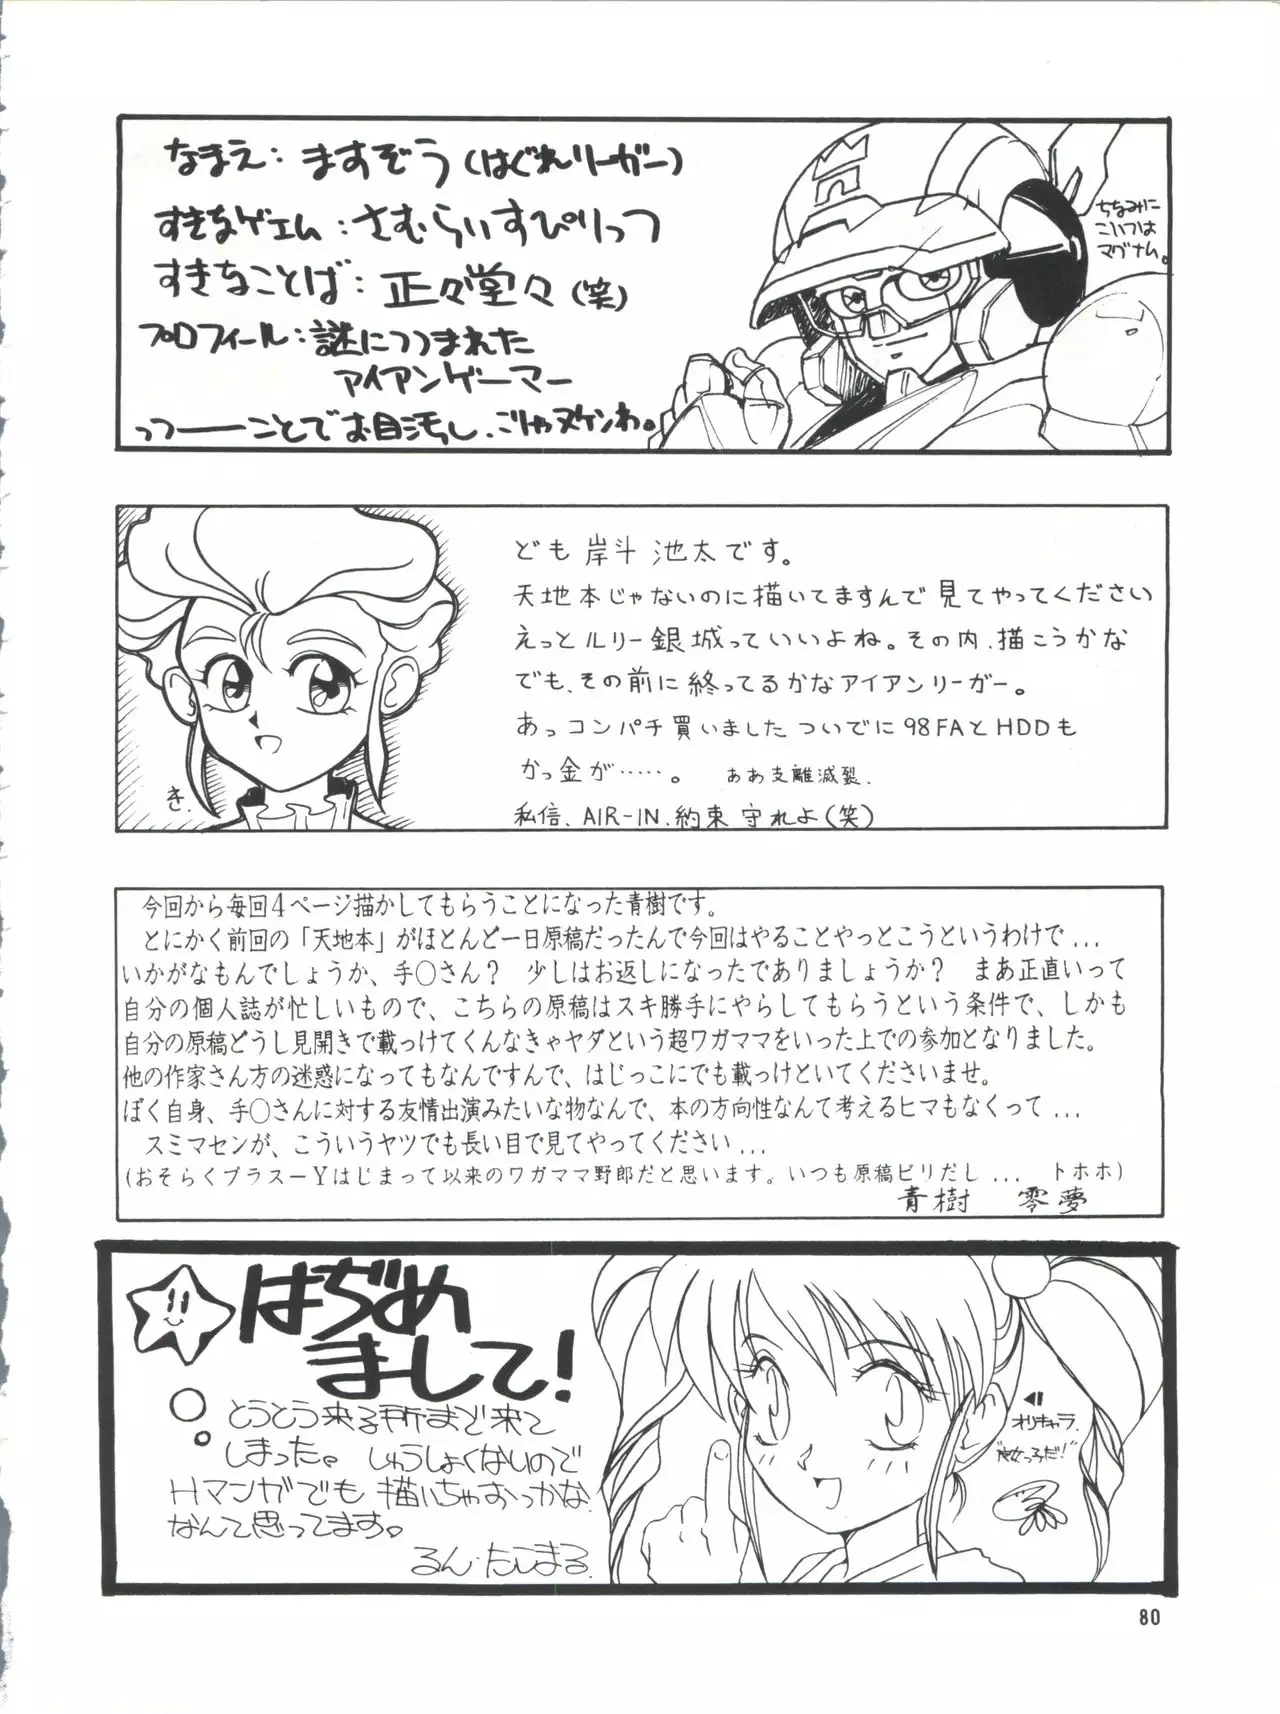 なまえ：ますぞう（はぐれリーガー）
すきなゲェム：さむらいすぴりっつ
すきなことば：正々堂々（笑）
プロフィール：謎につつまれた
アイアンゲーマー
っつーーことでお目汚し、ごりゃヌケンわ。
ちなみに
こいつは
マグナム。
ども 岸斗 池太です。
天地本じゃないのに描いてますんで見てやってください
えっとルリー銀城っていいよね。その内、描こうかな
でも、その前に終ってるかなアイアンリーガー。
あっコンパチ買いました ついでに98FAとHDDも
かっ金が……。 ああ支離滅裂.
私信、AIR-IN、約束守れよ（笑）
き.
今回から毎回4ページ描かしてもらうことになった青樹です。
とにかく前回の「天地本」がほとんど一日原稿だったんで今回はやることやっとこうというわけで...
いかがなもんでしょうか、手〇さん？ 少しはお返しになったでありましょうか？ まあ正直いって
自分の個人誌が忙しいもので、こちらの原稿はスキ勝手にやらしてもらうという条件で、しかも
自分の原稿どうし見開きで載っけてくんなきゃヤダという超ワガママをいった上での参加となりました。
他の作家さん方の迷惑になってもなんですんで、はじっこにでも載っけといてくださいませ。
ぼく自身、手〇さんに対する友情出演みたいな物なんで、本の方向性なんて考えるヒマもなくって...
スミマセンが、こういうヤツでも長い目で見てやってください...
(おそらくプラスーYはじまって以来のワガママ野郎だと思います。いつも原稿ビリだし... トホホ)
青樹 零夢
はぢめ
まして！
とうとう来る所まで来て
しまった。しゅうしょくないので
Hマンガでも描いちゃおっかな
なんて思ってます。
るん・たしまる.
オリキャラ.
80